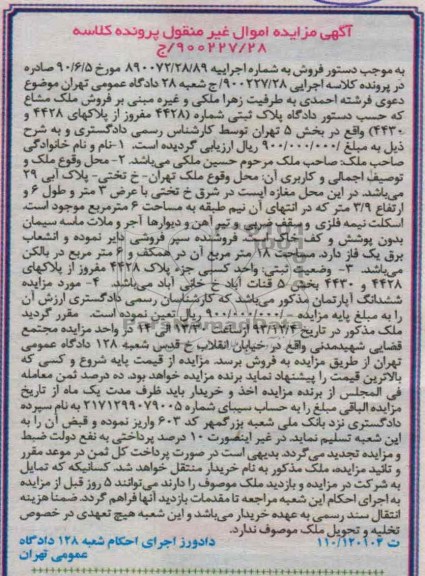 آگهی مزایده اموال غیر منقول پرونده کلاسه
۹۰۰۲۲۷/۲۸/ج
به موجب دستور فروش به شماره اجراییه ۸۹۰۰۷۲/۲۸/۸۹ مورخ ۹۰/۶/۵ صادره
در پرونده کلاسه اجرایی ۹۰۰۲۲۷/۲۸/ج شعبه ۲۸ دادگاه عمومی تهران موضوع
دعوی فرشته احمدی به طرفیت زهرا ملکی و غیره مبنی بر فروش ملک مشاع
که حسب دستور دادگاه پلاک ثبتی شماره (۴۴۲۸ مفروز از پلاکهای ۴۴۲۸ و
۴۴۳۰) واقع در بخش ۵ تهران توسط کارشناس رسمی دادگستری و به شرح
ذیل به مبلغ /۹۰۰/۰۰۰/۰۰۰ ریال ارزیابی گردیده است. ۱-نام و نام خانوادگی
صاحب ملک: صاحب ملک مرحوم حسین ملکی می‌باشد. ۲- محل وقوع ملک و
توصیف اجمالی و کاربری آن: محل وقوع ملک تهران- خ تختی- پلاک آبی ۲۹
می‌باشد. در این محل مغازه ایست در شرق خ تختی با عرض ۳ متر و طول ۶ و
ارتفاع ۳/۹ متر که در انتهای آن نیم طبقه به مساحت ۶ مترمربع موجود است.
اسکلت نیمه فلزی و سقف ضربی و تیر آهن و دیوارها آجر و ملات ماسه سیمان
بدون پوشش و کف خاکی است فروشنده سپر فروشی دایر نموده و انشعاب
برق یک فاز دارد. مساحت ۱۸ متر مربع آن در همکف و ۶ متر مربع در بالکن
می‌باشد. ۳- وضعیت ثبتی: واحد کسبی جزء پلاک ۴۴۲۸ مفروز از پلاکهای
۴۴۲۸ و ۴۴۳۰ بخش ۵ قنات آباد خ خانی آباد می‌باشد. ۴- مورد مزایده
ششدانگ آپارتمان مذکور می‌باشد که کارشناسان رسمی دادگستری ارزش آن
را به مبلغ پایه مزایده /۹۰۰/۰۰۰/۰۰۰ ریال تعین نموده است. مقرر گردید
ملک مذکور در تاریخ ۹۳/۳/۱۲ از ساعت در واحد مزایده مجتمع
قضایی شهیدمدنی واقع در خیابان انقلاب خ قدس شعبه ۱۲۸ دادگاه عمومی
تهران از طریق مزایده به فروش برسد. مزایده از قیمت پایه شروع و کسی که
بالاترین قیمت را پیشنهاد نماید برنده مزایده خواهد بود. ده درصد ثمن معامله
فی المجلس از برنده مزایده اخذ و خریدار باید ظرف مدت یک ماه از تاریخ
مزایده الباقی مبلغ را به حساب سیبای شماره ۲۱۷۱۲۹۹۰۷۹۰۰۵ به نام سپرده
دادگستری نزد بانک ملی شعبه بزرگمهر کد ۶۰۳ واریز نموده و قبض آن را به
این شعبه تسلیم نماید. در غیر اینصورت ۱۰ درصد پرداختی به نفع دولت ضبط
و مزایده تجدید می‌گردد. بدیهی است در صورت پرداخت کل ثمن در موعد مقرر
و تائید مزایده، ملک مذکور به نام خریدار منتقل خواهد شد. کسانیکه که تمایل
به شرکت در مزایده و بازدید ملک موصوف را دارند می‌توانند ۵ روز قبل از مزایده
به اجرای احکام این شعبه مراجعه تا مقدمات بازدید آنها فراهم گردد. ضمنا هزینه
انتقال سند رسمی به عهده خریدار می‌باشد و این شعبه هیچ تعهدی در خصوص
تخلیه و تحویل ملک موصوف ندارد.
دادورز اجرای احکام شعبه ۱۲۸ دادگاه
عمومی تهران
ت ۱۱۰/۱۲۰۱۰۲